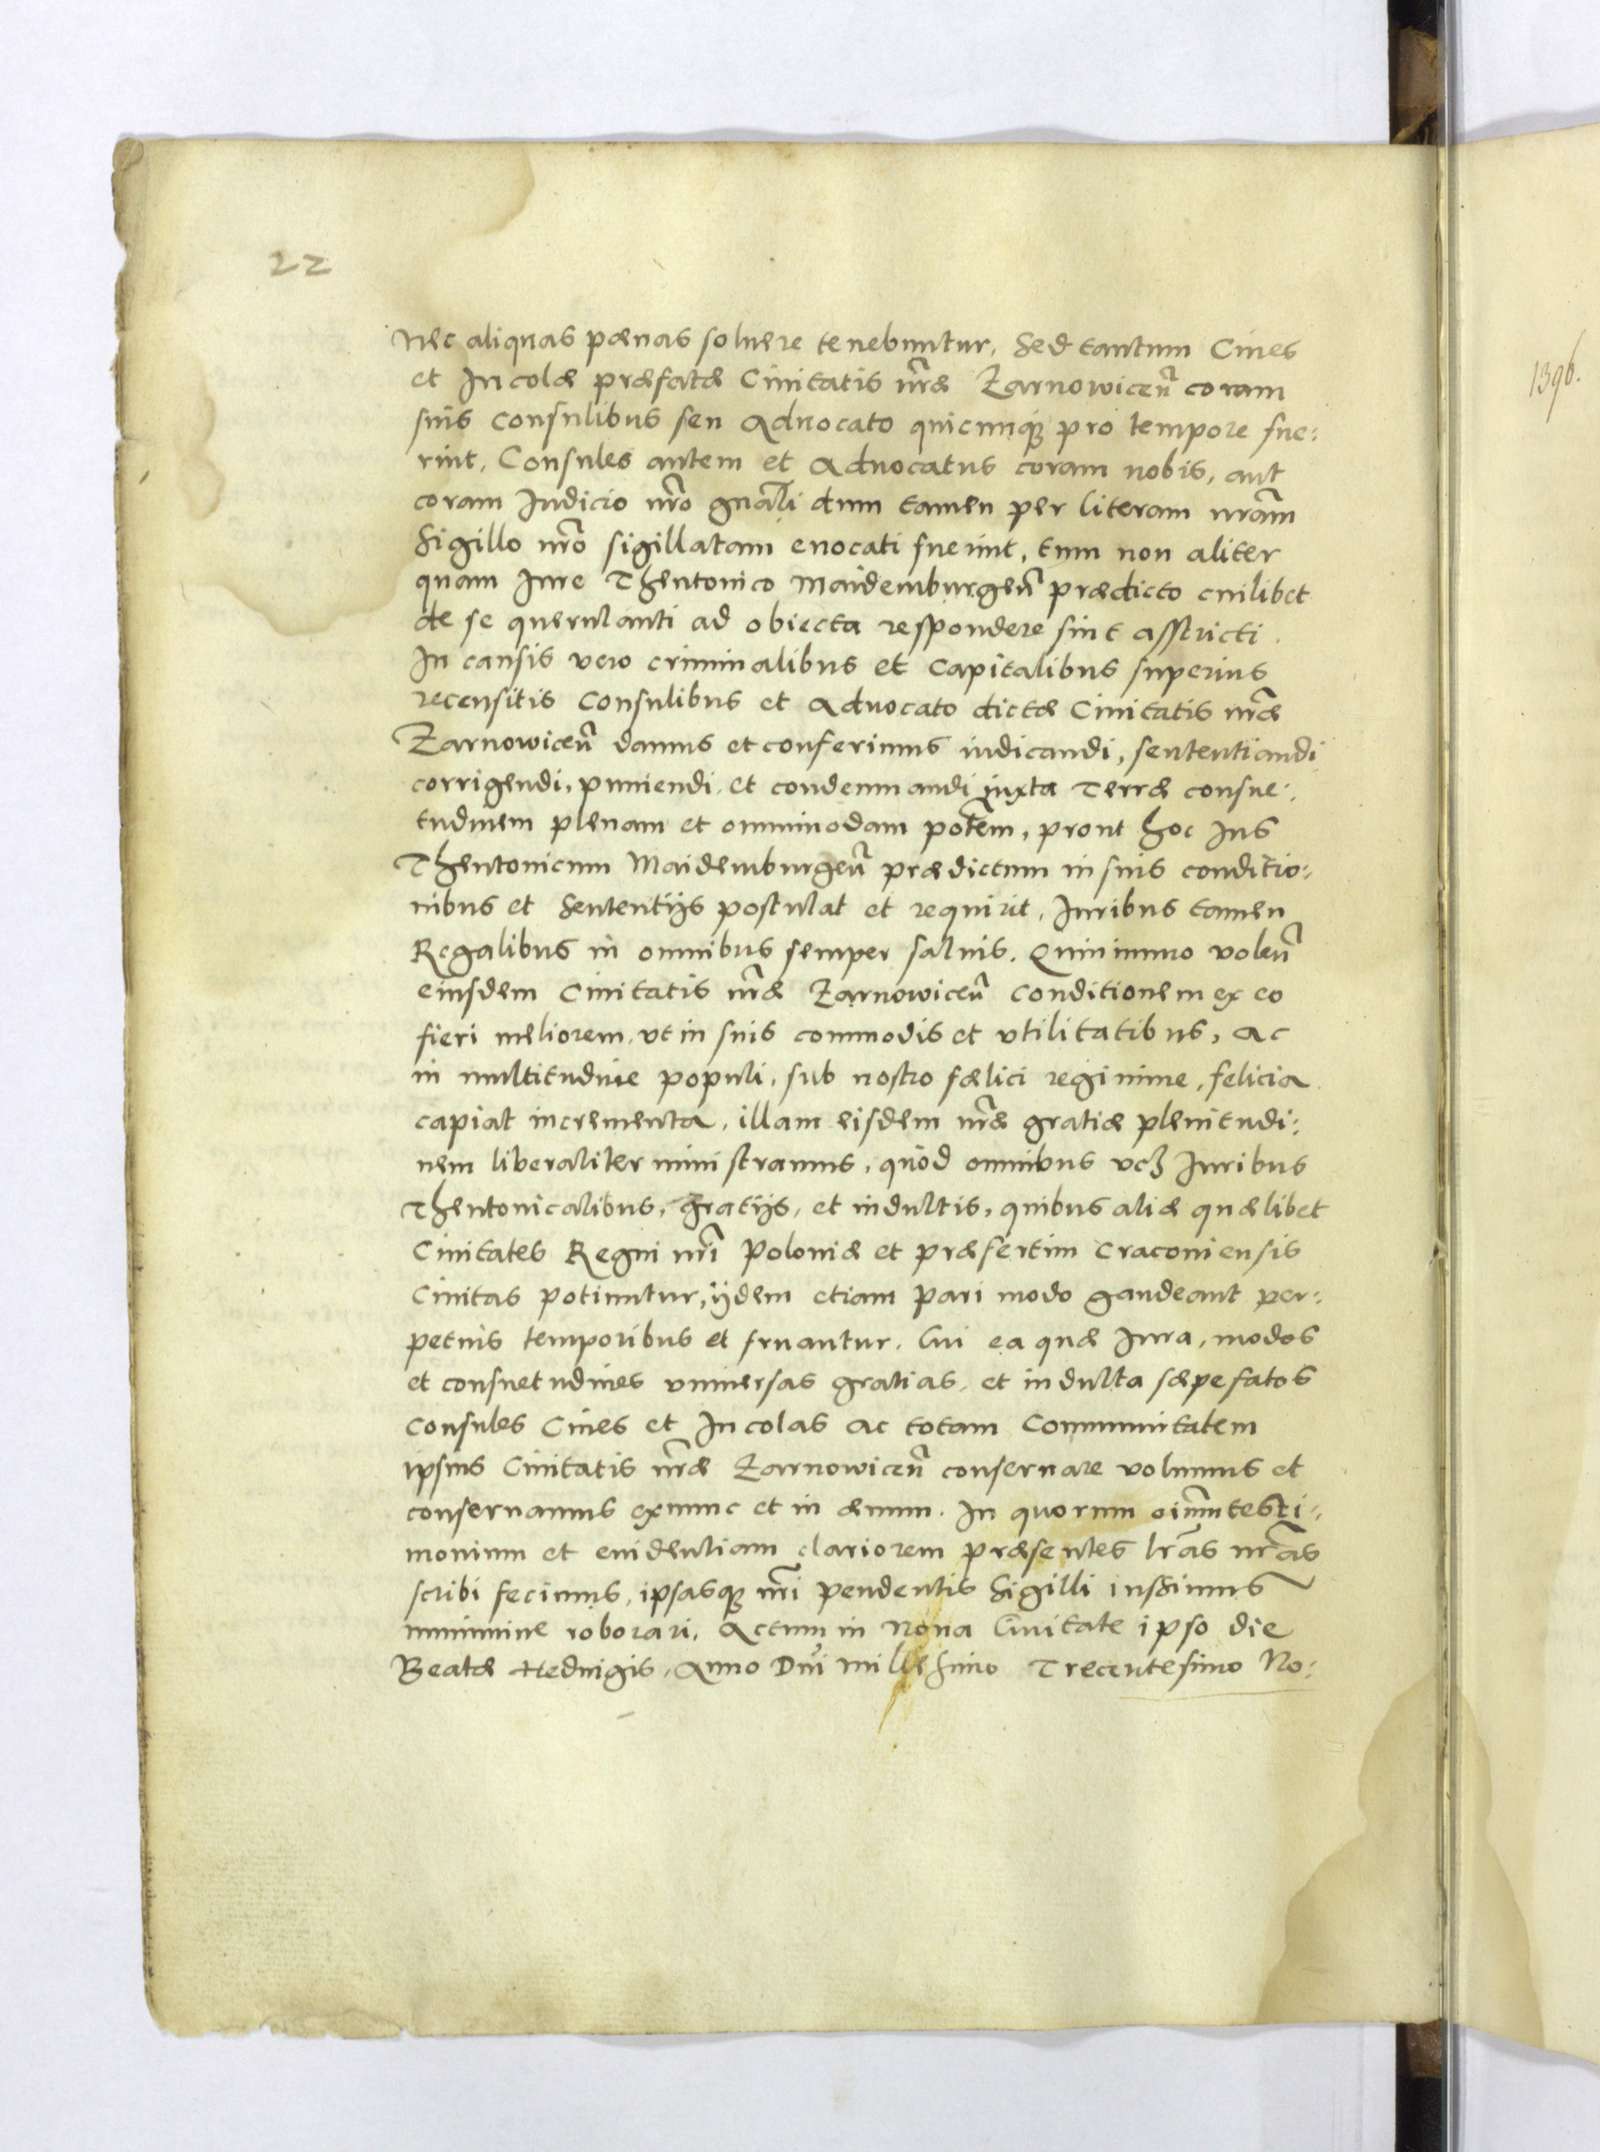 22
1396.
Nec aliquas pænas soluere tenebuntur, Sed tantum Ciues
et Incolæ præfatæ Ciuitatis nr̃æ Żarnowiceñ coram
suis Consulibus seu Aduocato quicunqȝ pro tempore fue:
rint, Consules autem et Aduocatus coram nobis, aut
coram Iudicio nr̃o gnãli dum tamen per literam nr̃am
Sigillo nr̃o sigillatam euocati fuerint, tum non aliter
quam Iure Theutonico Maidemburgeñ prædicto cuilibet
de se querulanti ad obiecta respondere sint astricti.
In causis vero criminalibus et Capitalibus superius
recensitis Consulibus et Aduocato dictæ Ciuitatis nr̃æ
Żarnowiceñ damus et conferimus iudicandi, sententiandi
corrigendi, puniendi, et condemnandi iuxta Terræ consue:
tudinem plenam et omnimodam potẽm, prout hoc Ius
Theutonicum Maidemburgeñ prædictum in suis conditio:
nibus et Sententijs postulat et requirit, Iuribus tamen
Regalibus in omnibus semper saluis. Quinimmo voleñ
eiusdem Ciuitatis nr̃æ Żarnowiceñ conditionem ex eo
fieri meliorem, vt in suis commodis et vtilitatibus, ac
in multitudine populi, sub nostro fælici regimine, felicia
capiat incrementa, illam eisdem nr̃æ gratiæ plenitudi:
nem liberaliter ministramus, quod omnibus vcȝ Iuribus
Theutonicalibus, gratijs, et indultis, quibus aliæ quælibet
Ciuitates Regni nr̃i Poloniæ et præsertim Cracouiensis
Ciuitas potiuntur, ijdem etiam pari modo gaudeant per:
petuis temporibus et fruantur. Cui ea quæ Iura, modos
et consuetudines vniuersas gratias, et indulta sæpefatos
Consules Ciues et Incolas ac totam Communitatem
ipsius Ciuitatis nr̃æ Żarnowiceñ conseruare volumus et
conseruamus exnunc et in æuum. In quorum oim̃ testi:
monium et euidentiam clariorem præsentes lr̃as nr̃as
scribi fecimus, ipsasqȝ nr̃i pendentis Sigilli iussimus
munimine roborari, Actum in Noua Ciuitate ipso die
Beatæ Heduigis, Anno Dñi Millesimo Trecentesimo No: